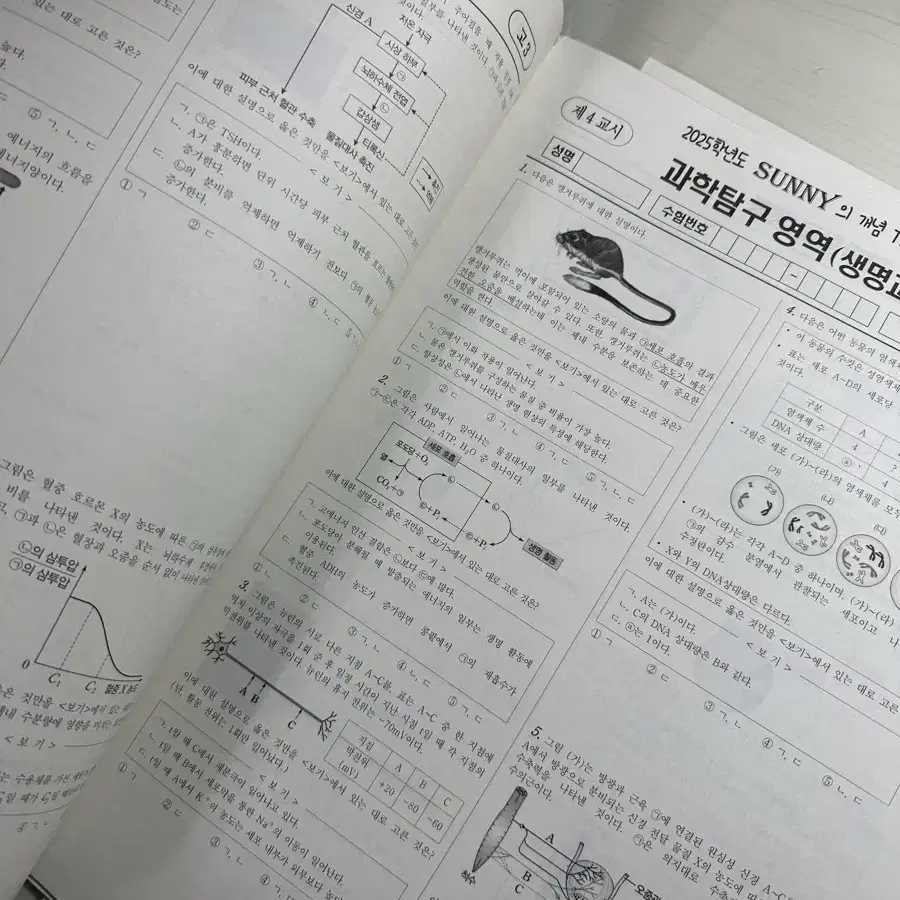 고3
신경 A
저온 자극
시상 하부
㉠
뇌하수체 전엽
㉡
갑상샘
티록신
피부 근처 혈관 수축
물질대사 촉진
이에 대한 설명으로 옳은 것만을 <보기>에서 있는 대로 고른 것은?
< 보 기 >
ㄱ. ㉠은 TSH이다.
ㄴ. A가 흥분하면 단위 시간당 피부 근처 혈관을 흐르는
증가한다.
ㄷ. ㉡의 분비를 억제하면 억제하기 전보다 ㉠의
증가한다.
① ㄱ
② ㄷ
③ ㄱ, ㄴ
④ ㄴ, ㄷ
있는 대로 고른 것은?
높다.
⑤ ㄱ, ㄴ, ㄷ
에너지의 흐름을
에너지양이다.
그림은 혈중 호르몬 X의 농도에 따른
비를 나타낸 것이다. X는 뇌하수체
㉠과 ㉡은 혈장과 오줌을 순서 없이 나타낸
㉡의 삼투압
㉠의 삼투압
0
C₁
C₂
혈중 X 농도
< 보 기 >
제 4 교시
2025학년도 SUNNY의 개념
과학탐구 영역(생명과
성명
수험번호
1. 다음은 캥거루쥐에 대한 설명이다.
캥거루쥐는 먹이에 포함되어 있는 소량의 물과 ㉠세포 호흡의 결과
생성된 물만으로 살아갈 수 있다. 또한 캥거루쥐는 ㉡농도가 매우
진한 오줌을 배설하는데 이는 체내 수분을 보존하는 데 중요한
역할을 한다.
이에 대한 설명으로 옳은 것만을 <보기>에서 있는 대로 고른 것은?
< 보 기 >
ㄱ. ㉠에서 이화 작용이 일어난다.
ㄴ. 물은 캥거루쥐를 구성하는 물질 중 비율이 가장 높다.
ㄷ. 항상성은 ㉡에서 나타난 생명 현상의 특성에 해당한다.
① ㄱ
② ㄷ
③ ㄱ, ㄴ
④ ㄴ, ㄷ
⑤ ㄱ, ㄴ, ㄷ
2. 그림은 사람에서 일어나는 물질대사의 일부를 나타낸 것이다.
㉠~㉢은 각각 ADP, ATP, H₂O 중 하나이다.
세포 호흡
포도당+O₂
열
CO₂+㉠
㉡
㉢+Pᵢ
㉡
㉢+Pᵢ
생명 활동
이에 대한 설명으로 옳은 것만을 <보기>에서 있는 대로 고른 것은?
< 보 기 >
ㄱ. 고에너지 인산 결합은 ㉡보다 ㉢에 많다.
ㄴ. 포도당이 분해될 때 방출되는 에너지의 일부는 생명 활동에
이용된다.
ㄷ. 혈중 ADH의 농도가 증가하면 콩팥에서 ㉠의 재흡수가
촉진된다.
① ㄴ
② ㄷ
③ ㄱ, ㄴ
④ ㄴ, ㄷ
⑤ ㄱ, ㄷ
3. 그림은 뉴런의 서로 다른 지점 A~C를, 표는 A~C 중 한 지점에
역치 이상의 자극을 1회 준 후 일정 시간이 지난 시점 t일 때 각 지점의
막전위를 나타낸 것이다. 뉴런의 휴지 전위는 -70mV이다.
(단, 활동 전위는 1회만 일어났다.)
A
B
C
지점 A B C
막전위(mV) +20 -80 -60
이에 대한 설명으로 옳은 것만을 <보기>에서 있는 대로 고른 것은?
< 보 기 >
ㄱ. t일 때 C에서 재분극이 일어나고 있다.
ㄴ. t일 때 B에서 세포막을 통한 Na⁺의 이동이 일어난다.
ㄷ. t일 때 A에서 K⁺의 농도는 세포 내부가 외부보다 높다.
① ㄱ
② ㄷ
③ ㄱ, ㄴ
④ ㄱ, ㄷ
4. 다음은 어떤 동물의 염색체
• 이 동물의 수컷은 성염색체
• 표는 세포 A~D의 세포당
것이다.
구분
A
염색체 수
4
?
DNA 상대량
ⓐ
4
• 그림은 세포 (가)~(라)의 염색체를 모두
(가)
(나)
(다)
• (가)~(라)는 각각 A~D 중 하나이며, (가)~(라)
㉠의 감수 분열에서 관찰되는 세포이고 나
수정란이다.
• X와 Y의 DNA상대량은 다르다.
이에 대한 설명으로 옳은 것만을 <보기>에서 있는 대로 고른
< 보 기 >
ㄱ. A는 (가)이다.
ㄴ. C의 DNA 상대량은 B와 같다.
ㄷ. ⓐ는 1이다.
① ㄱ
② ㄷ
③ ㄱ, ㄴ
④ ㄱ, ㄷ
⑤ ㄴ, ㄷ
5. 그림 (가)는 방광과 근육 ㉠에 연결된 원심성 신경 A~C
A에서 방광으로 분비되는 신경 전달 물질 X의 농도에 따
수축력을 나타낸 것이다. ㉠은 의지대로 수축
수의근이다.
A
B
C
척수